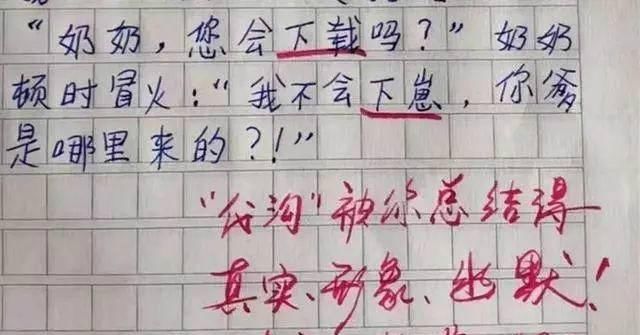 “奶奶，您会下载吗？”奶奶
顿时冒火：“我不会下崽，你爹
是哪里来的？！”
“代沟”被你总结得
真实、形象、幽默！